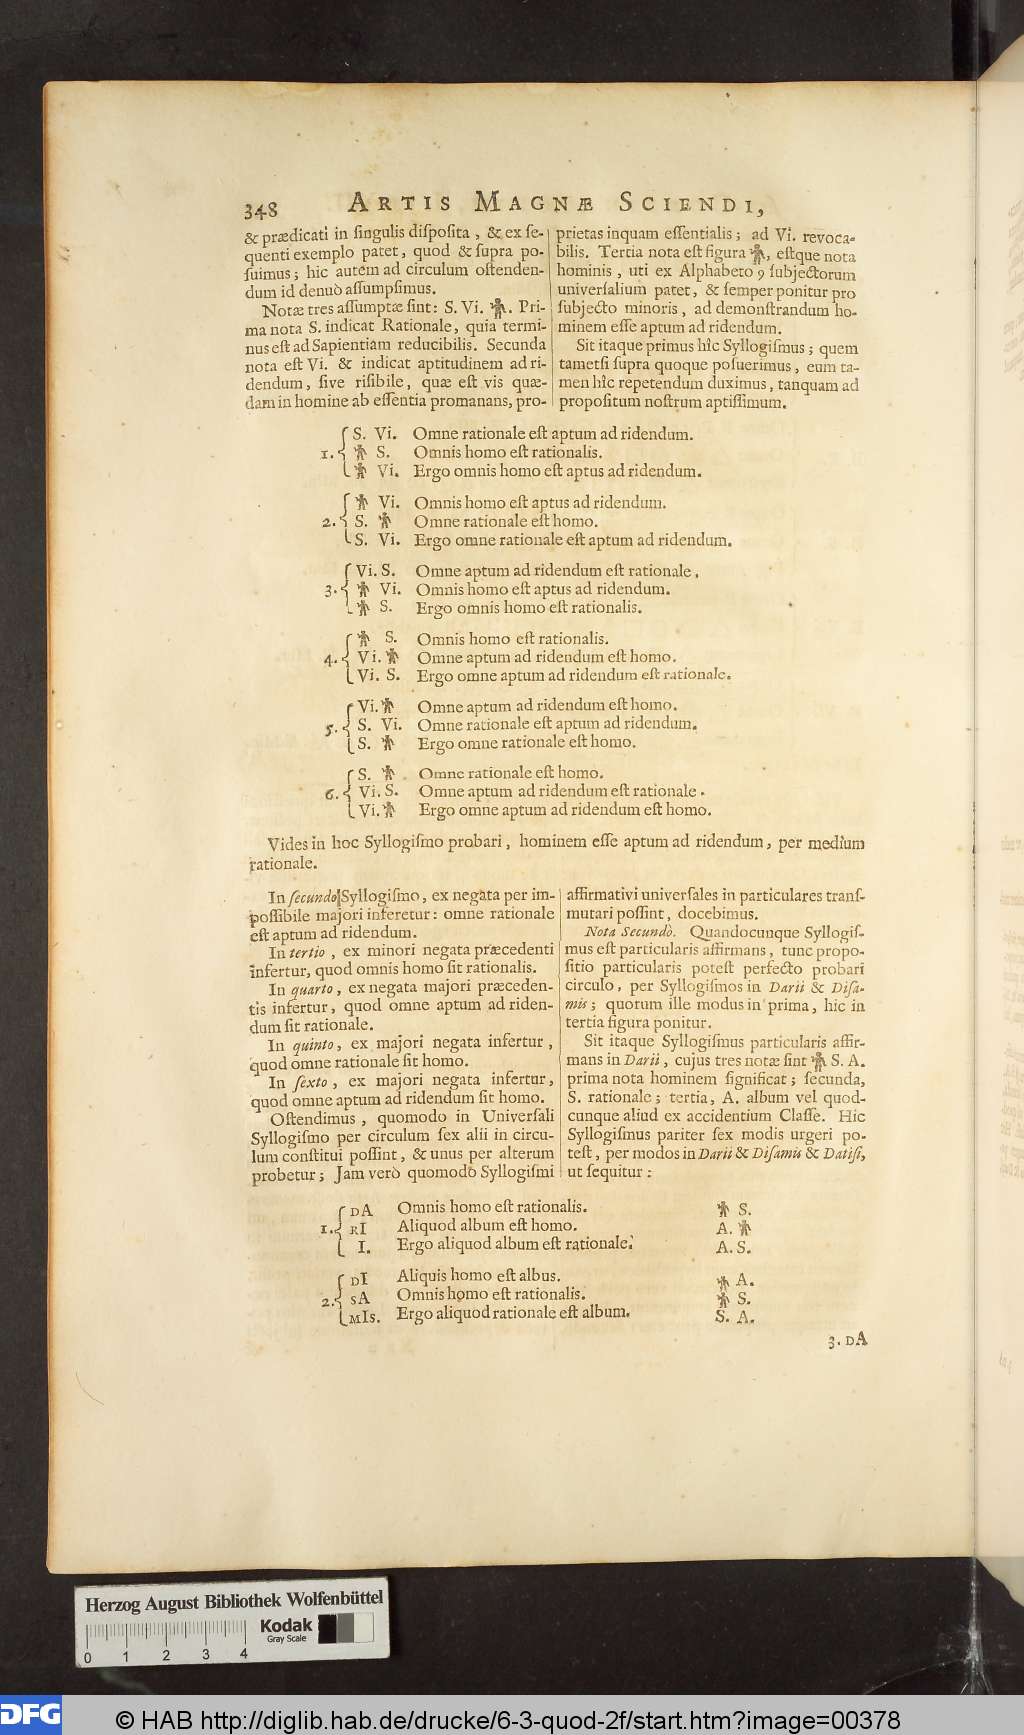 348 ARTIS MAGNÆ SCIENDI,
& prædicati in ſingulis diſpoſita, & ex ſe-
quenti exemplo patet, quod & ſupra po-
ſuimus; hic autem ad circulum oſtenden-
dum id denuò aſſumpſimus.
Notæ tres aſſumptæ ſint: S. Vi. . Pri-
ma nota S. indicat Rationale, quia termi-
nus eſt ad Sapientiam reducibilis. Secunda
nota eſt Vi. & indicat aptitudinem ad ri-
dendum, ſive riſibile, quæ eſt vis quæ-
dam in homine ab eſſentia promanans, pro-
prietas inquam eſſentialis; ad Vi. revoca-
bilis. Tertia nota eſt figura , eſtque nota
hominis, uti ex Alphabeto 9 ſubjectorum
univerſalium patet, & ſemper ponitur pro
ſubjecto minoris, ad demonſtrandum ho-
minem eſſe aptum ad ridendum.
Sit itaque primus hîc Syllogiſmus; quem
tametſi ſupra quoque poſuerimus, eum ta-
men hîc repetendum duximus, tanquam ad
propoſitum noſtrum aptiſſimum.
S. Vi. Omne rationale eſt aptum ad ridendum.
1. S. Omnis homo eſt rationalis.
Vi. Ergo omnis homo eſt aptus ad ridendum.
Vi. Omnis homo eſt aptus ad ridendum.
2. S. Omne rationale eſt homo.
S. Vi. Ergo omne rationale eſt aptum ad ridendum.
Vi. S. Omne aptum ad ridendum eſt rationale.
3. Vi. Omnis homo eſt aptus ad ridendum.
S. Ergo omnis homo eſt rationalis.
S. Omnis homo eſt rationalis.
4. Vi. Omne aptum ad ridendum eſt homo.
Vi. S. Ergo omne aptum ad ridendum eſt rationale.
Vi. Omne aptum ad ridendum eſt homo.
5. S. Vi. Omne rationale eſt aptum ad ridendum.
S. Ergo omne rationale eſt homo.
S. Omne rationale eſt homo.
6. Vi. S. Omne aptum ad ridendum eſt rationale.
Vi. Ergo omne aptum ad ridendum eſt homo.
Vides in hoc Syllogiſmo probari, hominem eſſe aptum ad ridendum, per medium
rationale.
In ſecundo Syllogiſmo, ex negata per im-
poſſibile majori inferetur: omne rationale
eſt aptum ad ridendum.
In tertio, ex minori negata præcedenti
infertur, quod omnis homo ſit rationalis.
In quarto, ex negata majori præceden-
tis infertur, quod omne aptum ad riden-
dum ſit rationale.
In quinto, ex majori negata infertur,
quod omne rationale ſit homo.
In ſexto, ex majori negata infertur,
quod omne aptum ad ridendum ſit homo.
Oſtendimus, quomodo in Univerſali
Syllogiſmo per circulum ſex alii in circu-
lum conſtitui poſſint, & unus per alterum
probetur; Jam verò quomodo Syllogiſmi
affirmativi univerſales in particulares tranſ-
mutari poſſint, docebimus.
Nota Secundò. Quandocunque Syllogiſ-
mus eſt particularis affirmans, tunc propo-
ſitio particularis poteſt perfecto probari
circulo, per Syllogiſmos in Darii & Diſa-
mis; quorum ille modus in prima, hic in
tertia figura ponitur.
Sit itaque Syllogiſmus particularis affir-
mans in Darii, cujus tres notæ ſint S. A.
prima nota hominem ſignificat; ſecunda,
S. rationale; tertia, A. album vel quod-
cunque aliud ex accidentium Claſſe. Hic
Syllogiſmus pariter ſex modis urgeri po-
teſt, per modos in Darii & Diſamis & Datiſi,
ut ſequitur:
DA Omnis homo eſt rationalis. S.
1. RI Aliquod album eſt homo. A.
I. Ergo aliquod album eſt rationale. A. S.
DI Aliquis homo eſt albus. A.
2. SA Omnis homo eſt rationalis. S.
MIs. Ergo aliquod rationale eſt album. S. A.
3. DA
Herzog August Bibliothek Wolfenbüttel
Kodak
Gray Scale
0 1 2 3 4
DFG
© HAB http://diglib.hab.de/drucke/6-3-quod-2f/start.htm?image=00378